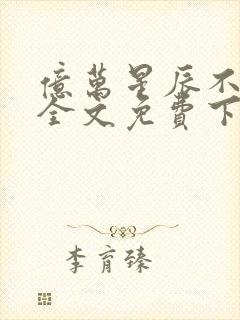 億萬星辰不
全文免費下
李育臻